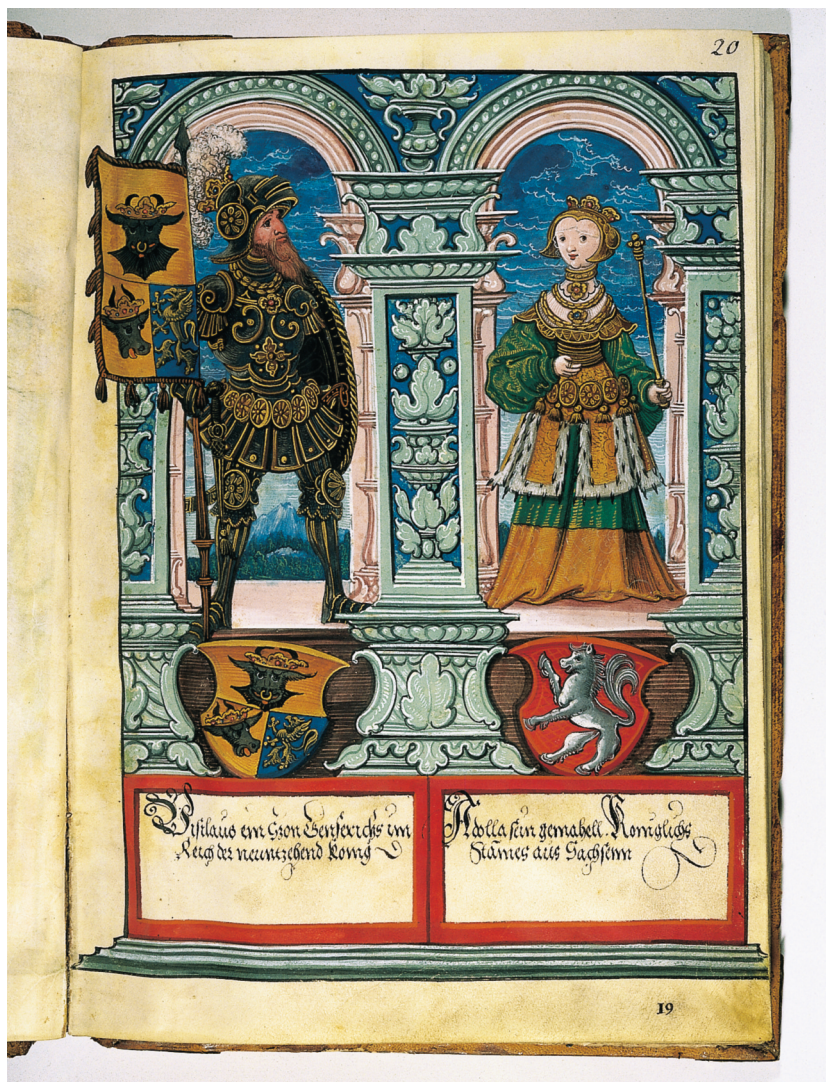 20
Visilaus ein Son Genserichs im
Reich der neuntzehend Konig
Adolla sein gemahell. Koniglichs
Stames aus Sachsenn
19